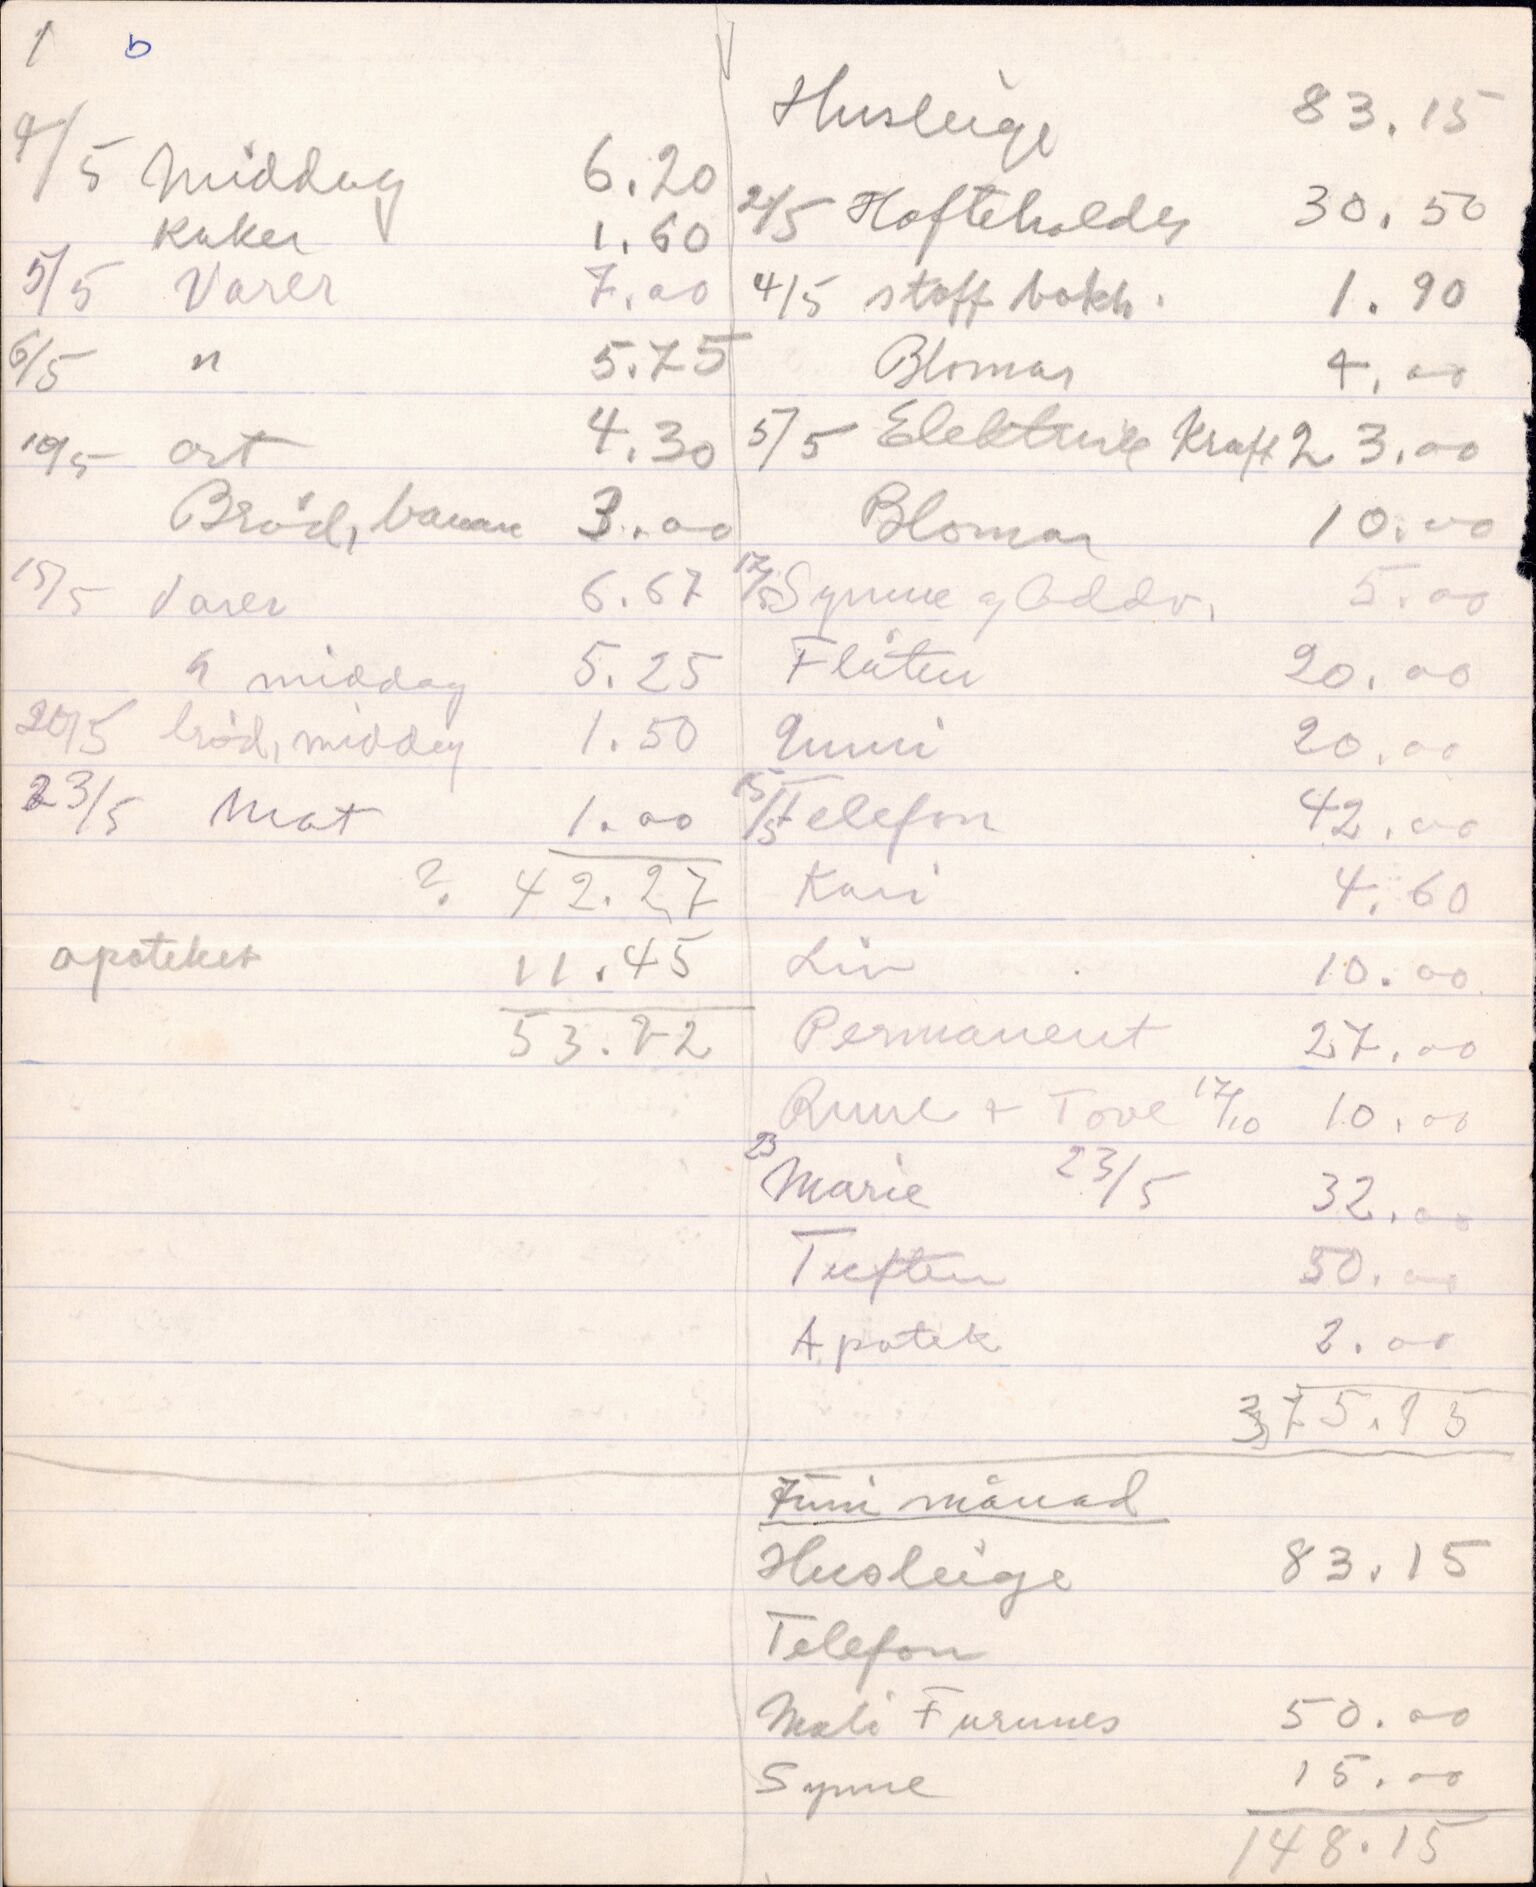 1 b
4/5 Middag 6.20
Kaker 1.60
5/5 Varer 7.00
6/5 " 5.75
10/5 ost 4.30
Bröd, banan 3.00
15/5 Varer 6.67
" middag 5.25
20/5 bröd, middag 1.50
23/5 Mat 1.00
2. 42.27
apoteket 11.45
53.72
Husleige 83.15
2/5 Hofteholder 30.50
4/5 stoff 1.90
Blomar 4.00
5/5 Elektrisk Kraft 23.00
Blomar 10.00
17/5 Synne og Oddv. 5.00
Flåten 20.00
20.00
15/5 Telefon 42.00
Kari 4.60
Liv 10.00
Permanent 27.00
Rune + Tove 17/10 10.00
23 Marie 23/5 32.00
Tuften 50.00
Apotek 2.00
375.15
Juni månad
Husleige 83.15
Telefon
Mali Furunes 50.00
Synne 15.00
148.15